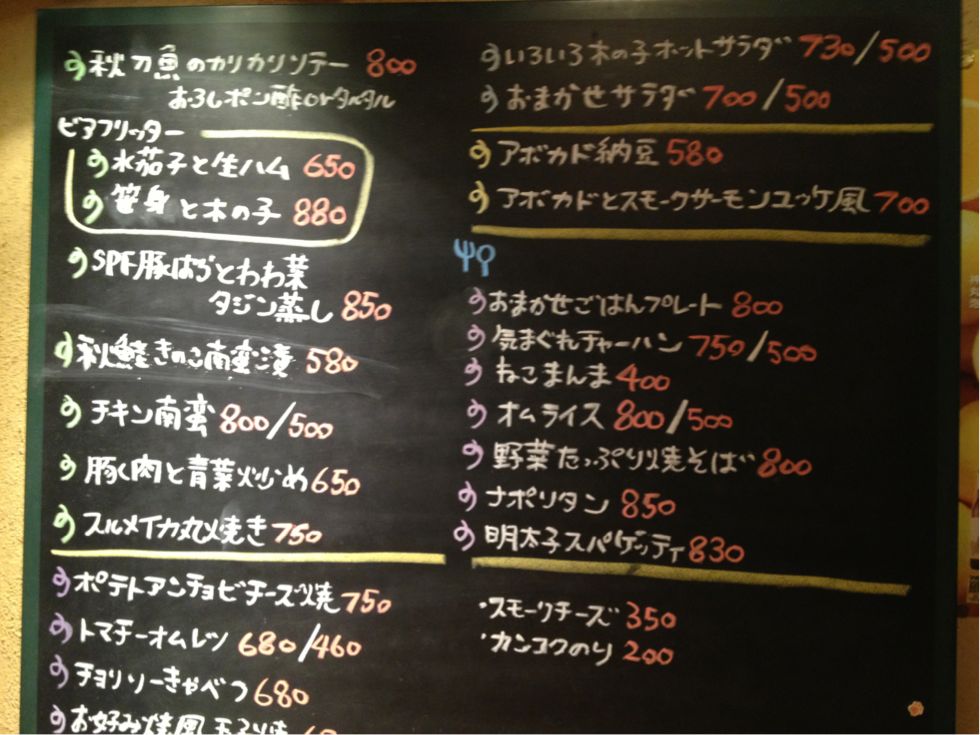 秋刀魚のカリカリソテー 800
おろしポン酢orタルタル
ビアフリッター
水茄子と生ハム 650
笹身と木の子 880
SPF豚ばらとわわ菜
タジン蒸し 850
秋鮭きのこ南蛮漬 580
チキン南蛮 800/500
豚く肉と青菜炒め 650
スルメイカ丸焼き 750
ポテトアンチョビチーズ焼 750
トマチーオムレツ 680/460
チョリソーきゃべつ 680
お好み焼風玉子焼
いろいろ木の子ホットサラダ 730/500
おまかせサラダ 700/500
アボカド納豆 580
アボカドとスモークサーモンユッケ風 700
おまかせごはんプレート 800
気まぐれチャーハン 750/500
ねこまんま 400
オムライス 800/500
野菜たっぷり焼そば 800
ナポリタン 850
明太子スパゲッティ 830
・スモークチーズ 350
・カンコクのり 200